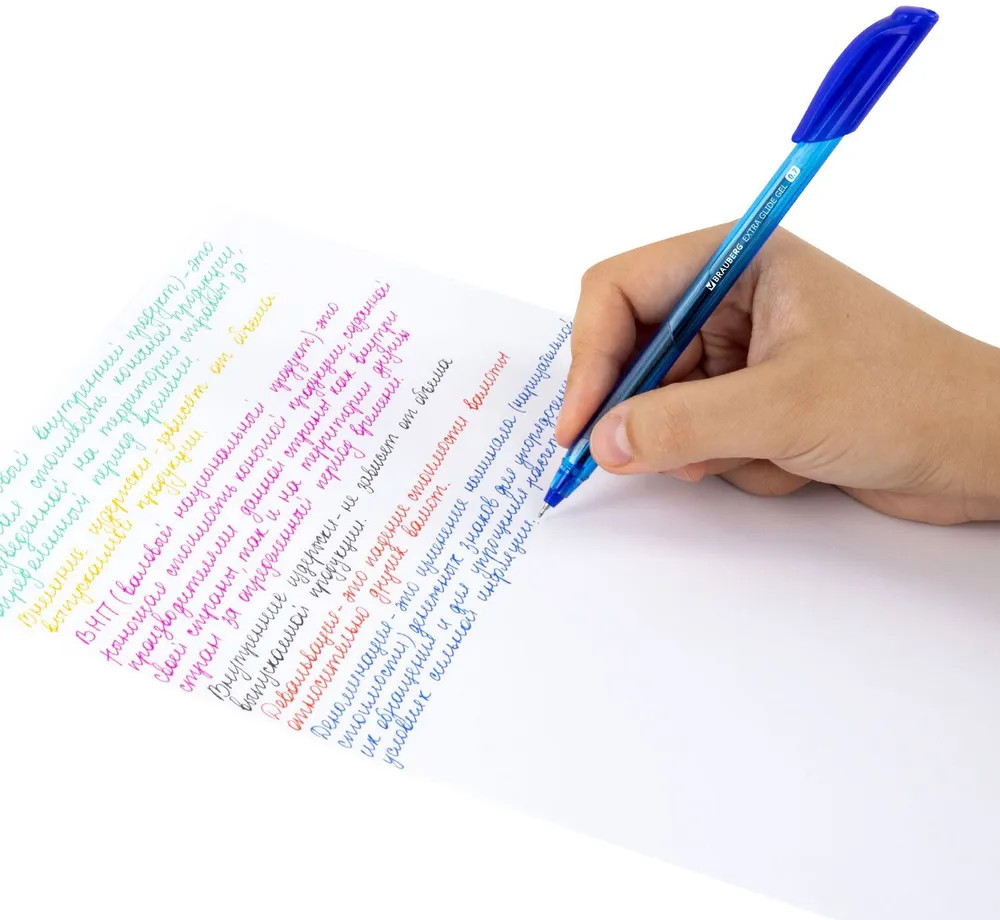 внутренний продукт) - это
стоимость конечной продукции,
на территории страны за
определенный период времени.
Внешние издержки - зависят от объема
выпускаемой продукции.
ВНП (валовый национальный продукт) - это
стоимость конечной продукции созданной
производителями данной страны как внутри
своей страны, так и на территории других
стран за определенный период времени.
Внутренние издержки - не зависят от объема
выпускаемой продукции.
Девальвация - это падение стоимости валюты
относительно других валют.
Деноминация - это уменьшение номинала (нарицательной
стоимости) денежных знаков для упорядочения
их обращения и для упрощения расчет
условиях сильной инфляции.
BRAUBERG EXTRA GLIDE GEL 0.7